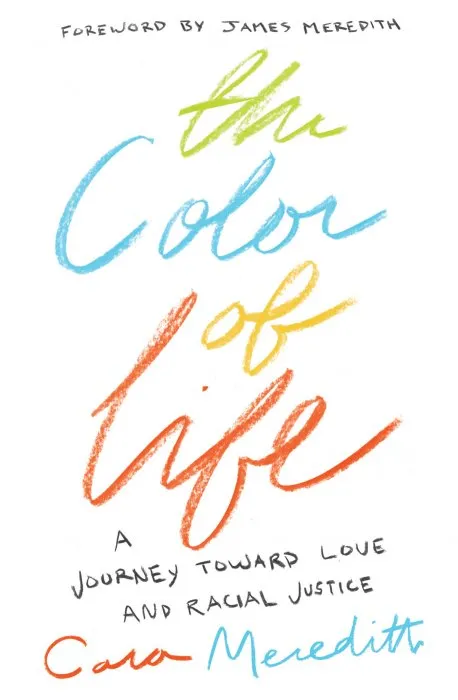 FOREWORD BY JAMES MEREDITH
the
Color
of
life
A
JOURNEY TOWARD LOVE
AND RACIAL JUSTICE
Cara Meredith